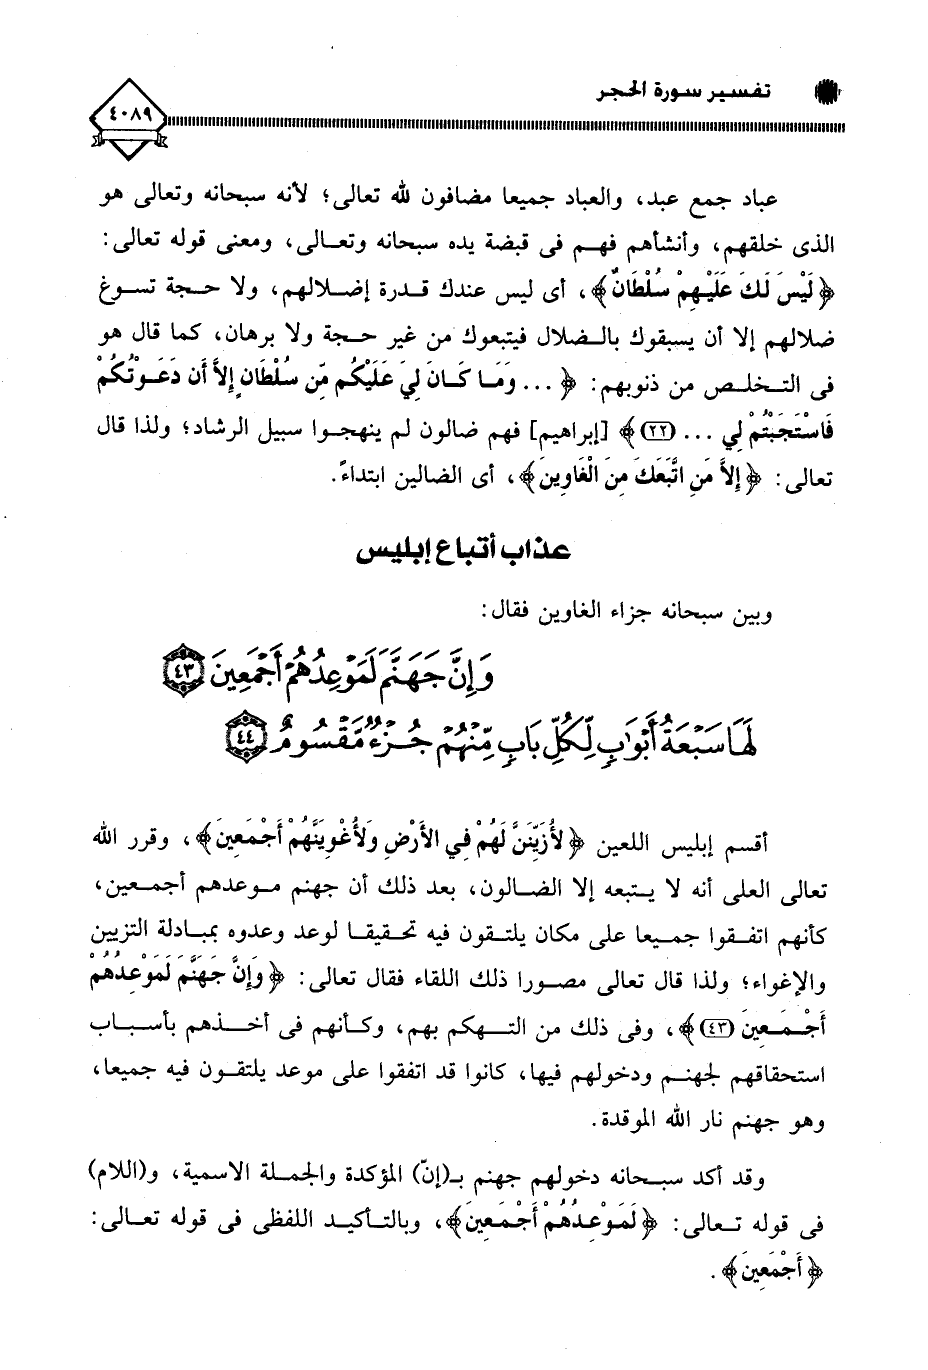 تفسير سورة الحجر
٤٠٨٩
عباد جمع عبد، والعباد جميعا مضافون لله تعالى؛ لأنه سبحانه وتعالى هو
الذى خلقهم، وأنشأهم فهم فى قبضة يده سبحانه وتعالى، ومعنى قوله تعالى:
﴿لَيْسَ لَكَ عَلَيْهِمْ سُلْطَانٌ﴾، أى ليس عندك قدرة إضلالهم، ولا حجة تسوغ
ضلالهم إلا أن يسبقوك بالضلال فيتبعوك من غير حجة ولا برهان، كما قال هو
فى التخلص من ذنوبهم: ﴿... وَمَا كَانَ لِيَ عَلَيْكُم مِّن سُلْطَانٍ إِلاَّ أَن دَعَوْتُكُمْ
فَاسْتَجَبْتُمْ لِي ... (٢٢)﴾ [إبراهيم] فهم ضالون لم ينهجوا سبيل الرشاد؛ ولذا قال
تعالى: ﴿إِلاَّ مَنِ اتَّبَعَكَ مِنَ الْغَاوِينَ﴾، أى الضالين ابتداءً.
عذاب أتباع إبليس
وبين سبحانه جزاء الغاوين فقال:
وَإِنَّ جَهَنَّمَ لَمَوْعِدُهُمْ أَجْمَعِينَ ٤٣
لَهَا سَبْعَةُ أَبْوَابٍ لِّكُلِّ بَابٍ مِّنْهُمْ جُزْءٌ مَّقْسُومٌ ٤٤
أقسم إبليس اللعين ﴿لأُزَيِّنَنَّ لَهُمْ فِي الأَرْضِ وَلأُغْوِيَنَّهُمْ أَجْمَعِينَ﴾، وقرر الله
تعالى العلى أنه لا يتبعه إلا الضالون، بعد ذلك أن جهنم موعدهم أجمعين،
كأنهم اتفقوا جميعا على مكان يلتقون فيه تحقيقا لوعد وعدوه بمبادلة التزيين
والإغواء؛ ولذا قال تعالى مصورا ذلك اللقاء فقال تعالى: ﴿وَإِنَّ جَهَنَّمَ لَمَوْعِدُهُمْ
أَجْمَعِينَ (٤٣)﴾، وفى ذلك من التهكم بهم، وكأنهم فى أخذهم بأسباب
استحقاقهم لجهنم ودخولهم فيها، كانوا قد اتفقوا على موعد يلتقون فيه جميعا،
وهو جهنم نار الله الموقدة.
وقد أكد سبحانه دخولهم جهنم بـ(إنّ) المؤكدة والجملة الاسمية، و(اللام)
فى قوله تعالى: ﴿لَمَوْعِدُهُمْ أَجْمَعِينَ﴾، وبالتأكيد اللفظى فى قوله تعالى:
﴿أَجْمَعِينَ﴾.